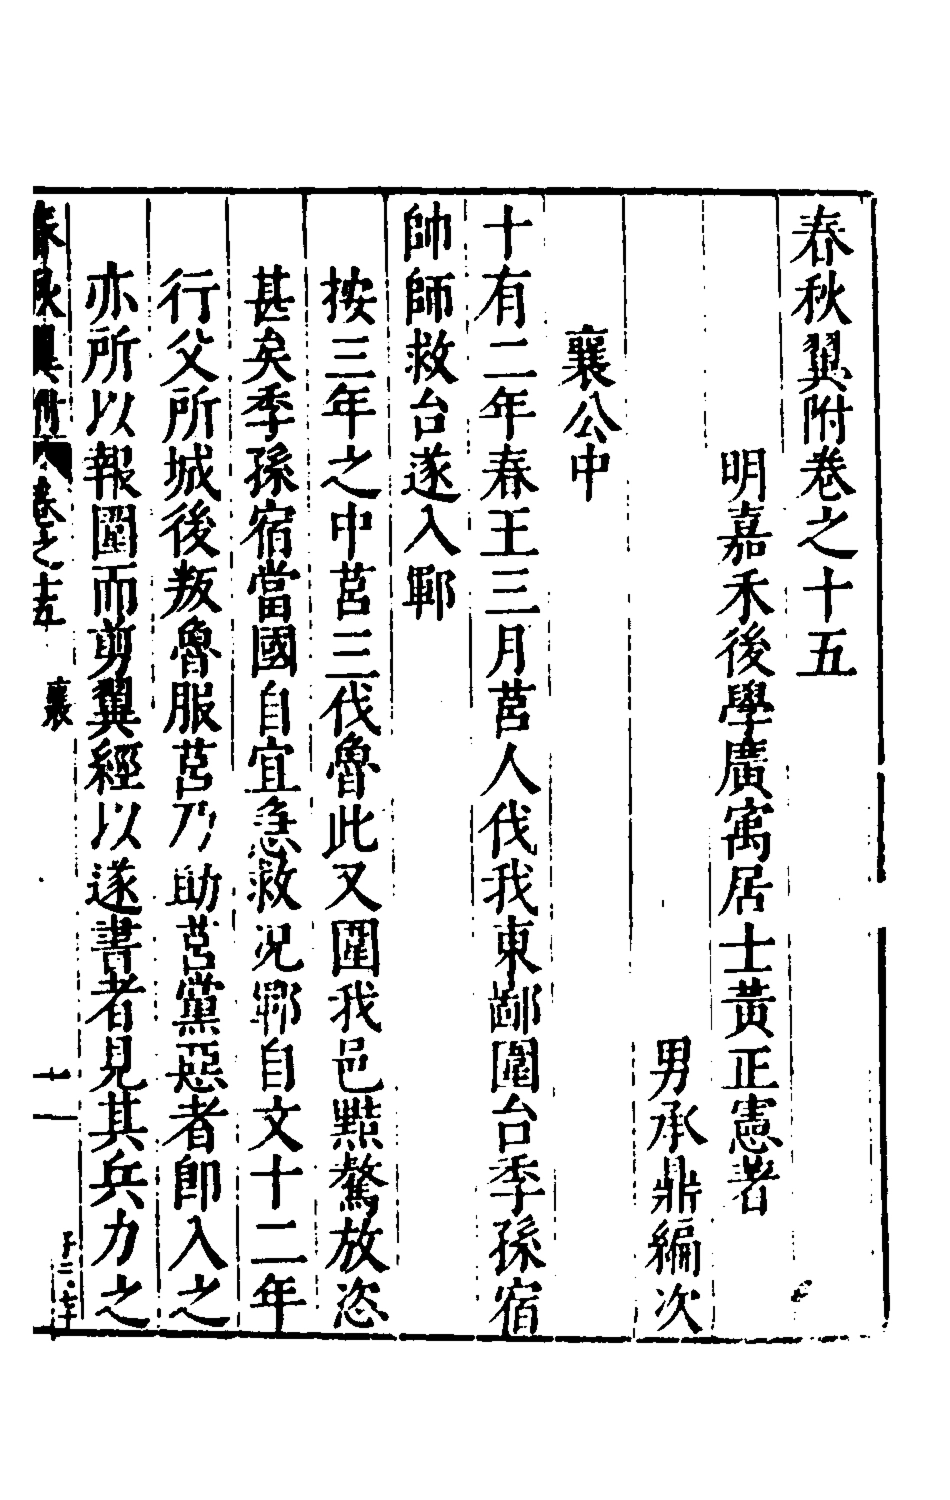 春秋翼附卷之十五
明嘉禾後學廣寓居士黃正憲著
男承鼎編次
襄公中
十有二年春王三月莒人伐我東鄙圍台季孫宿
帥師救台遂入鄆
按三年之中莒三伐魯此又圍我邑黠驁放恣
甚矣季孫宿當國自宜急救况鄆自文十二年
行父所城後叛魯服莒乃助莒黨惡者卽入之
亦所以報圍而剪翼經以遂書者見其兵力之
春秋翼附 卷之十五 襄 一